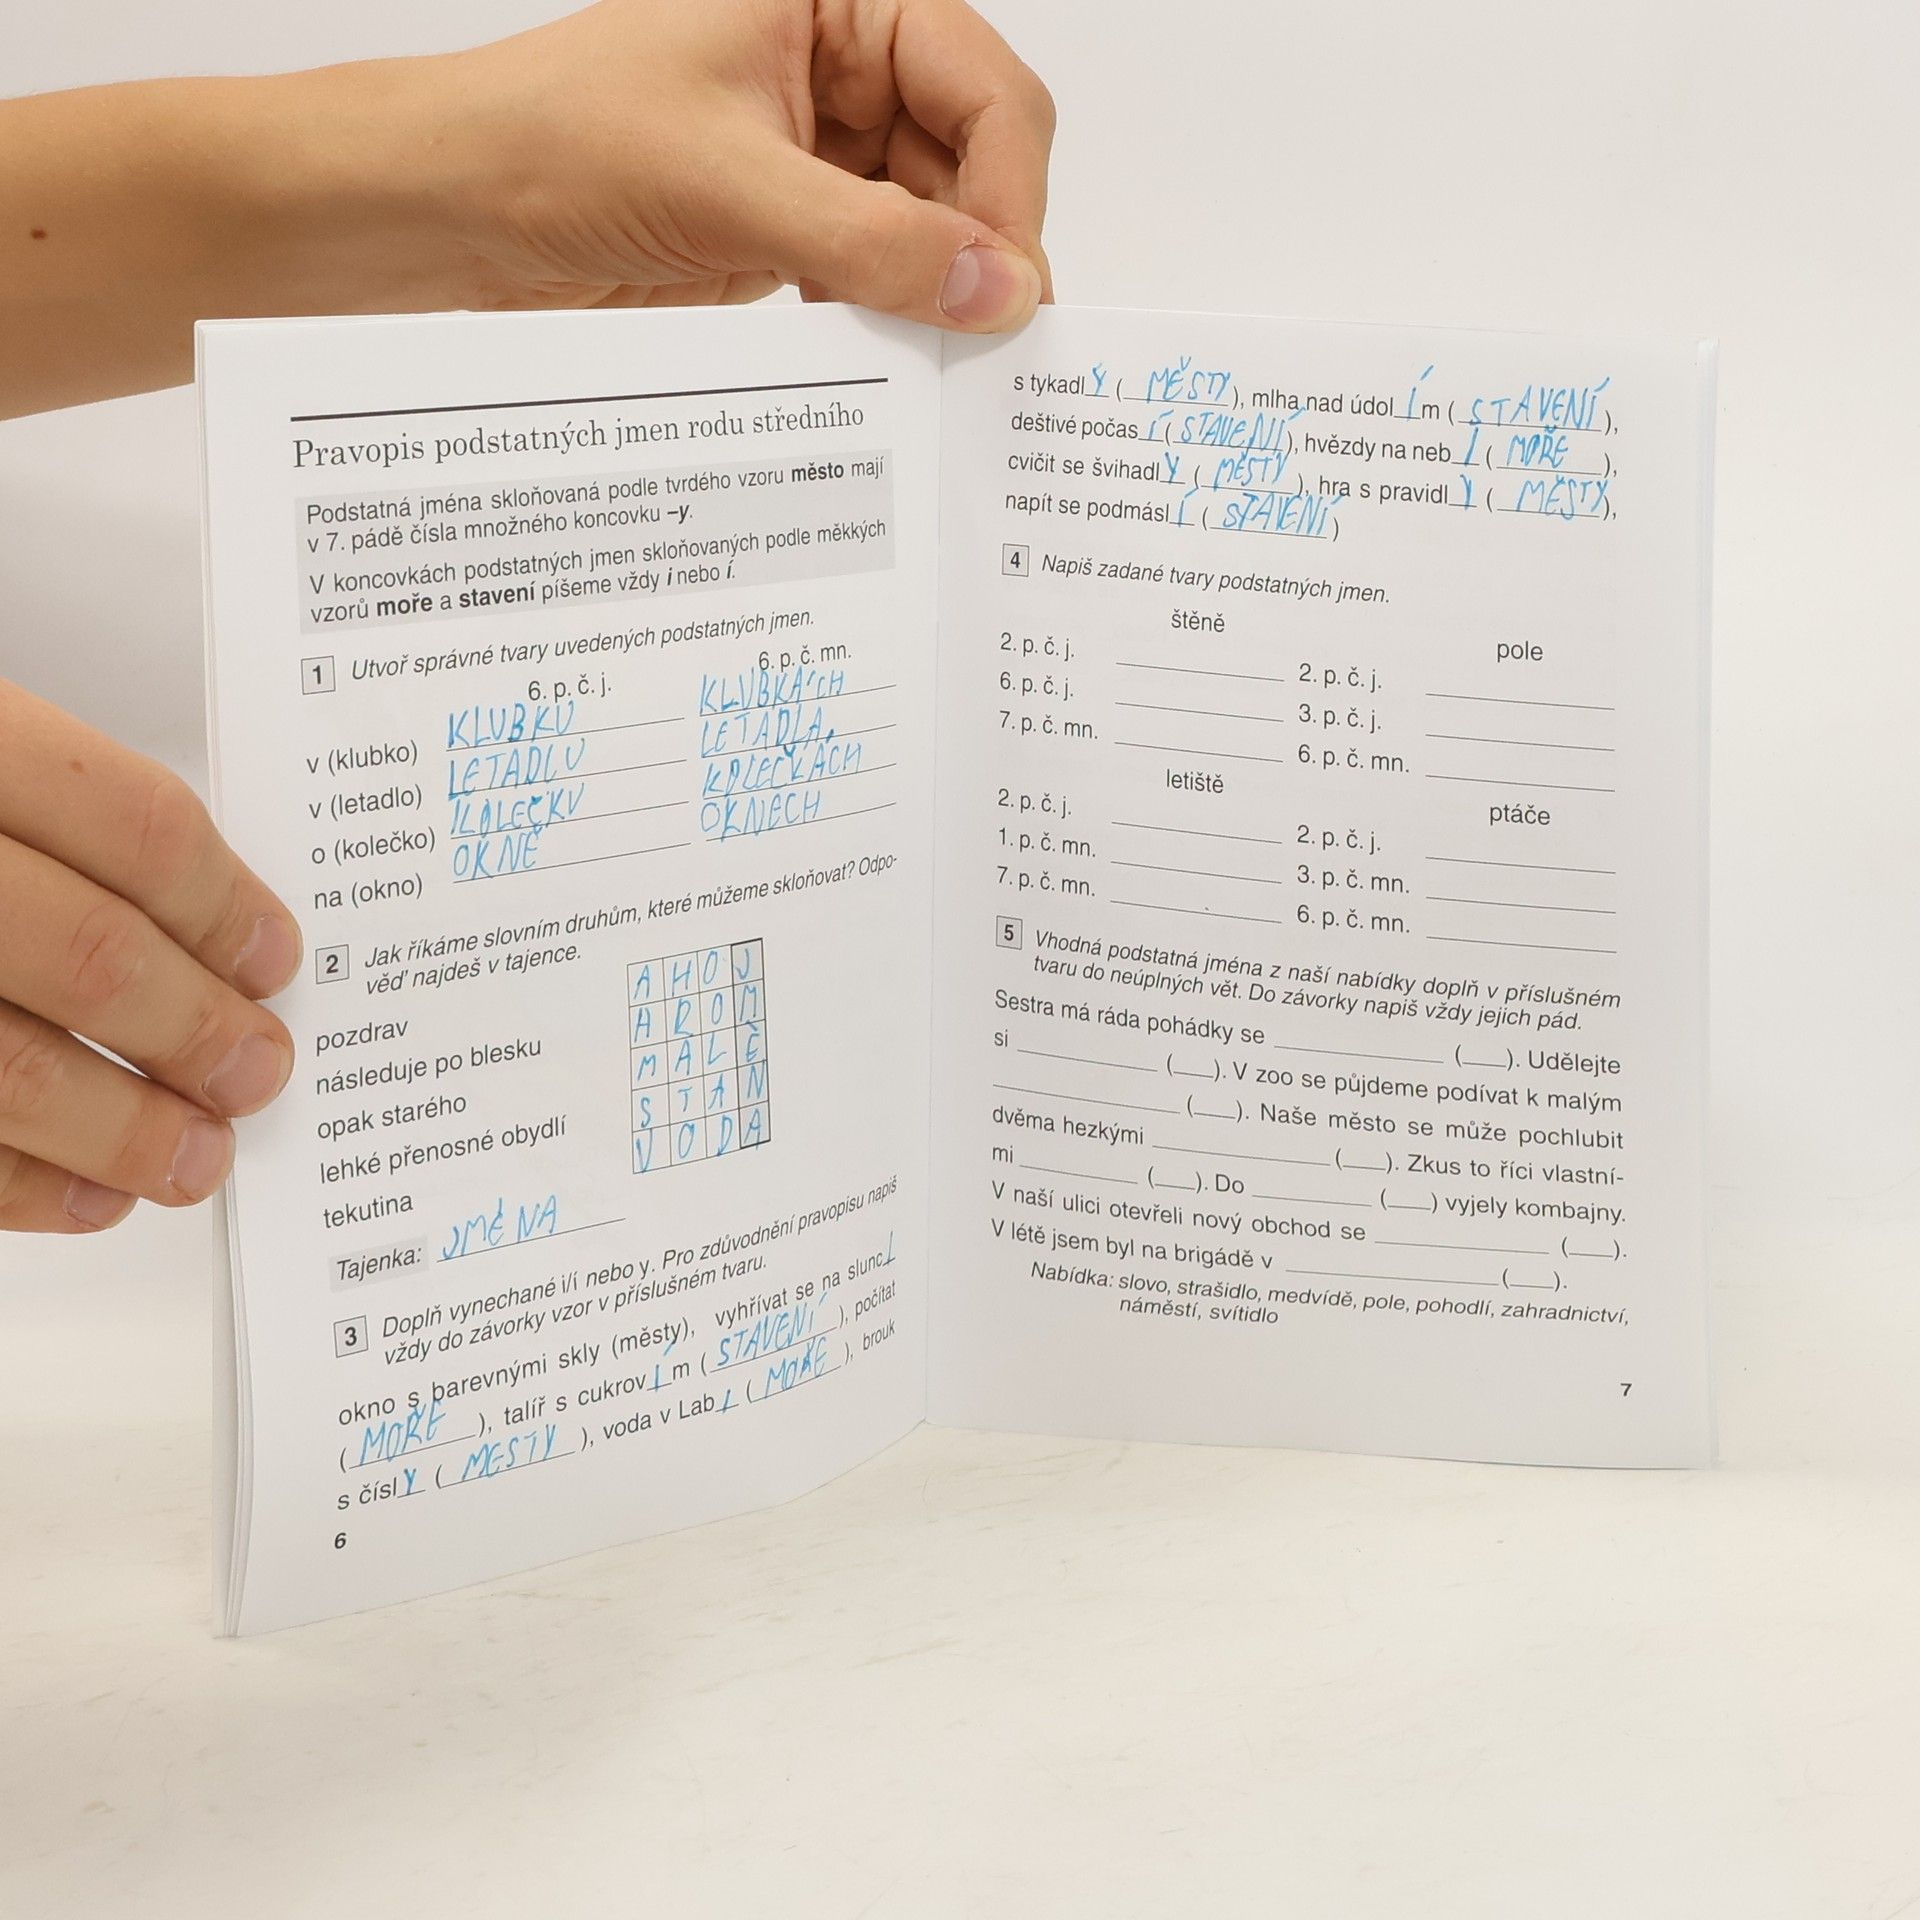 Pravopis podstatných jmen rodu středního
Podstatná jména skloňovaná podle tvrdého vzoru město mají
v 7. pádě čísla množného koncovku –y.
V koncovkách podstatných jmen skloňovaných podle měkkých
vzorů moře a stavení píšeme vždy i nebo í.
1 Utvoř správné tvary uvedených podstatných jmen.
6. p. č. j. 6. p. č. mn.
v (klubko) KLUBKU KLUBKÁCH
v (letadlo) LETADLU LETADLA
o (kolečko) KOLEČKU KOLEČKÁCH
na (okno) OKNĚ OKNECH
2 Jak říkáme slovním druhům, které můžeme skloňovat? Odpo-
věď najdeš v tajence.
pozdrav AHOJ
následuje po blesku HROM
opak starého MALÉ
lehké přenosné obydlí STAN
tekutina VODA
Tajenka: JMÉNA
3 Doplň vynechané i/í nebo y. Pro zdůvodnění pravopisu napiš
vždy do závorky vzor v příslušném tvaru.
okno s barevnými skly (městy), vyhřívat se na slunc_I_
( MOŘE ), talíř s cukrov_Í_m ( STAVENÍ ), počítat
s čísl_Y_ ( MESTY ), voda v Lab_I_ ( MOŘE ), brouk
6
s tykadl_Y_ ( MĚSTY ), mlha nad údol_Í_m ( STAVENÍ ),
deštivé počas_Í_ ( STAVENÍ ), hvězdy na neb_I_ ( MOŘE ),
cvičit se švihadl_Y_ ( MĚSTY ), hra s pravidl_Y_ ( MĚSTY ),
napít se podmásl_Í_ ( STAVENÍ )
4 Napiš zadané tvary podstatných jmen.
štěně pole
2. p. č. j. ____ 2. p. č. j. ____
6. p. č. j. ____ 3. p. č. j. ____
7. p. č. mn. ____ 6. p. č. mn. ____
letiště ptáče
2. p. č. j. ____ 2. p. č. j. ____
1. p. č. mn. ____ 3. p. č. mn. ____
7. p. č. mn. ____ 6. p. č. mn. ____
5 Vhodná podstatná jména z naší nabídky doplň v příslušném
tvaru do neúplných vět. Do závorky napiš vždy jejich pád.
Sestra má ráda pohádky se ____ (__). Udělejte
si ____ (__). V zoo se půjdeme podívat k malým
____ (__). Naše město se může pochlubit
dvěma hezkými ____ (__). Zkus to říci vlastní-
mi ____ (__). Do ____ (__) vyjely kombajny.
V naší ulici otevřeli nový obchod se ____ (__).
V létě jsem byl na brigádě v ____ (__).
Nabídka: slovo, strašidlo, medvídě, pole, pohodlí, zahradnictví,
náměstí, svítidlo
7